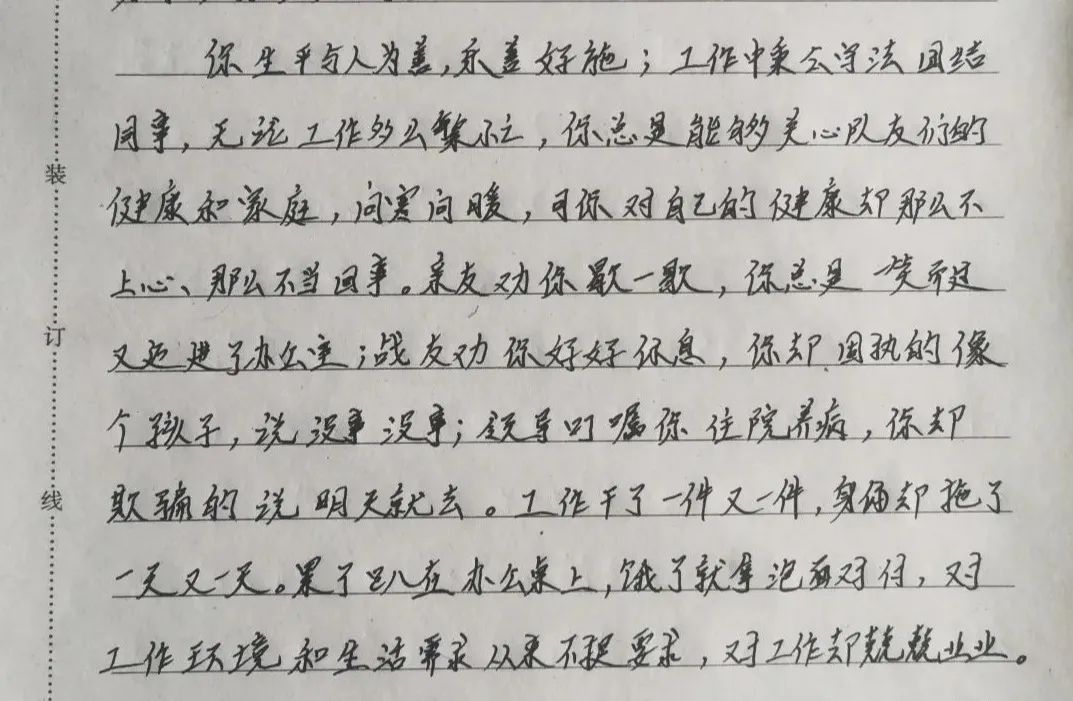 你生平与人为善,乐善好施;工作中秉公守法团结
同事,无论工作多么繁忙,你总是能够关心队友们的
健康和家庭,问寒问暖,可你对自己的健康却那么不
上心、那么不当回事。亲友劝你歇一歇,你总是一笑而过
又迈进了办公室;战友劝你好好休息,你却固执的像
个孩子,说没事没事;领导叮嘱你住院养病,你却
欺骗的说明天就去。工作干了一件又一件,身体却拖了
一天又一天。累了趴在办公桌上,饿了就拿泡面对付,对
工作环境和生活需求从来不提要求,对工作却兢兢业业。
装
订
线